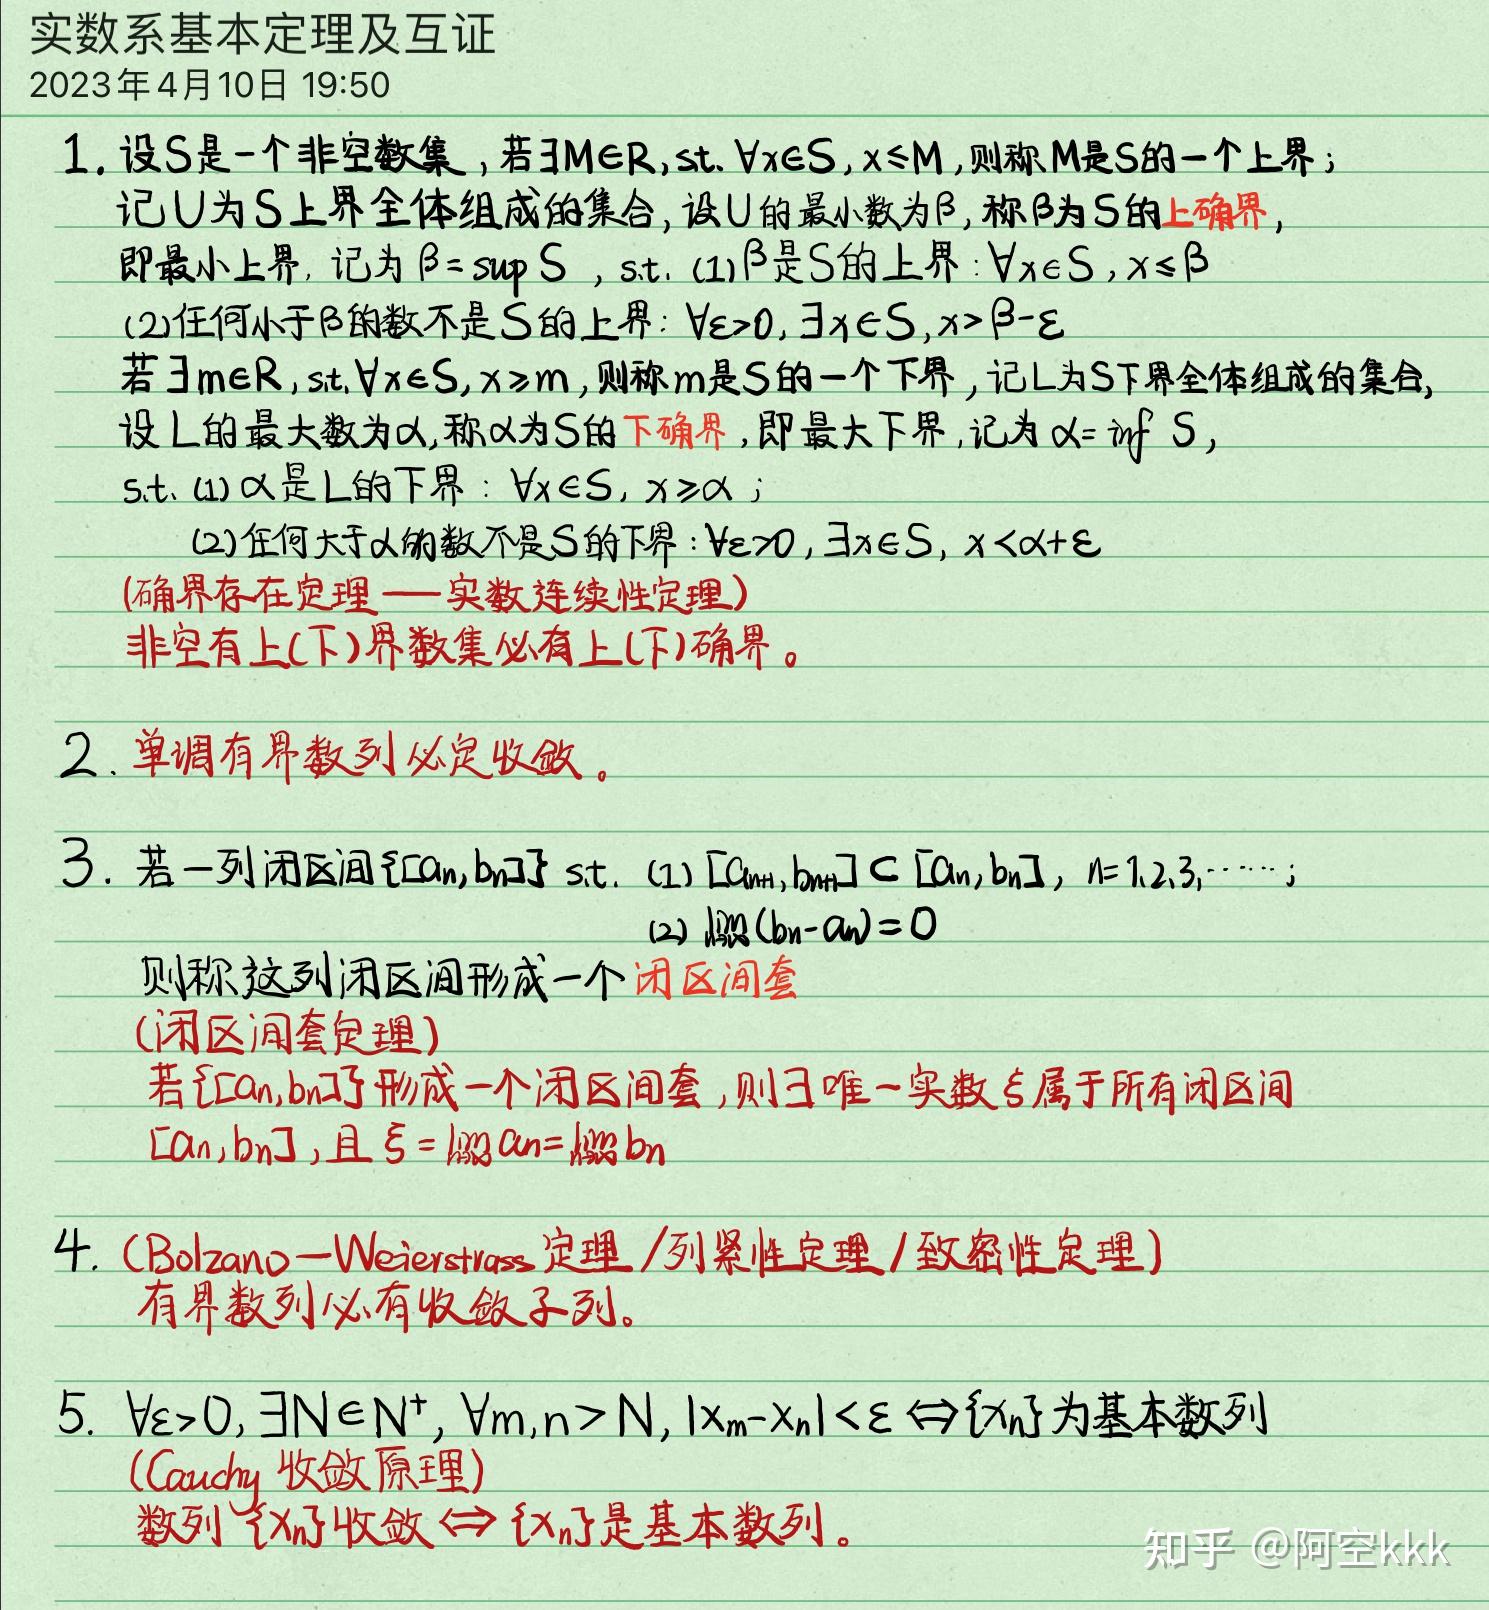 实数系基本定理及互证
2023年4月10日 19:50
1. 设S是一个非空数集,若∃M∈R,s.t. ∀x∈S,x≤M,则称M是S的一个上界;
记U为S上界全体组成的集合,设U的最小数为β,称β为S的上确界,
即最小上界,记为 β=sup S ,s.t. (1)β是S的上界:∀x∈S,x≤β
(2)任何小于β的数不是S的上界:∀ε>0,∃x∈S,x>β-ε
若∃m∈R,s.t.∀x∈S,x≥m,则称m是S的一个下界,记L为S下界全体组成的集合,
设L的最大数为α,称α为S的下确界,即最大下界,记为 α=inf S,
s.t. (1)α是L的下界:∀x∈S,x≥α;
(2)任何大于α的数不是S的下界:∀ε>0,∃x∈S,x<α+ε
(确界存在定理——实数连续性定理)
非空有上(下)界数集必有上(下)确界。
2. 单调有界数列必定收敛。
3. 若一列闭区间{[aₙ,bₙ]} s.t. (1)[aₙ₊₁,bₙ₊₁]⊂[aₙ,bₙ], n=1,2,3,……;
(2) lim(bₙ-aₙ)=0
则称这列闭区间形成一个闭区间套
(闭区间套定理)
若{[aₙ,bₙ]}形成一个闭区间套,则∃唯一实数ξ属于所有闭区间
[aₙ,bₙ],且ξ=lim aₙ=lim bₙ
4. (Bolzano—Weierstrass定理/列紧性定理/致密性定理)
有界数列必有收敛子列。
5. ∀ε>0,∃N∈N⁺,∀m,n>N,|xₘ-xₙ|<ε⇔{xₙ}为基本数列
(Cauchy收敛原理)
数列{xₙ}收敛⇔{xₙ}是基本数列。
知乎 @阿空kkk